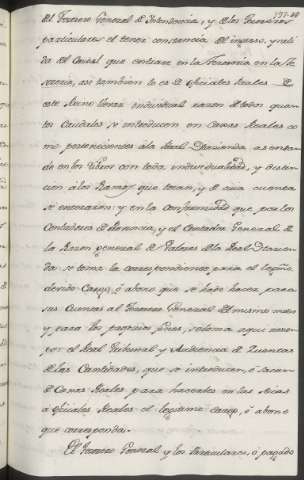 al Tesorero General de Intendencia, y a los Tesoreros
particulares el tener constancia del ingreso, y sali-
da del Caudal que entrare en la Tesoreria en la Te-
soreria, asi tambien lo es a Oficiales Reales
este Mismo llevar individual razon de todos quan-
tos Caudales se introducen en Caxas Reales co-
mo pertenecientes a la Real Hacienda, asentan-
dolos en los Libros con toda individualidad, y distin-
cion a los Ramos que tocan, y de cuia cuenta
se enteraren; y en la conformidad que por los
Contadores de Provincia, y el Contador General de
la Razon general de Valores de la Real Hacien-
da se toma la correspondiente para el legitimo
devido Cargo, ó abono que se hade hacer para
sus Cuentas al Tesorero General del mismo modo
y para los propios fines, se toma aqui razon
por el Real Tribunal y Audiencia de Cuentas
de las Cantidades, que se introducen, ó sacan
de Caxas Reales para hacerles en las suias
a Oficiales Reales el legitimo cargo, ó abono
que corresponda.
El Tesorero General y los Particulares, ó pagado